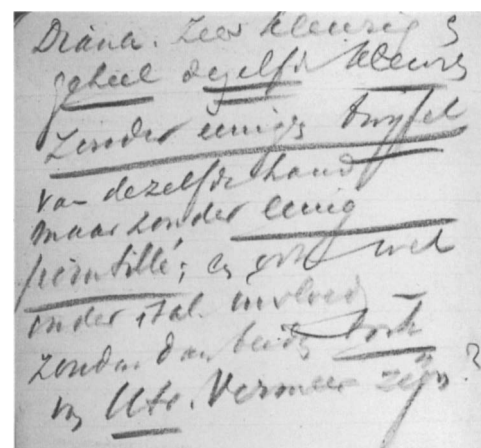 Diana. Zeer kleurig &
geheel dezelfde kleuren
Zonder eenigen twijfel
van dezelfde hand
maar zonder eenig
pointillé; en ook wel
onder ital. invloed
zouden dan beide toch
v Utr. Vermeer zijn?